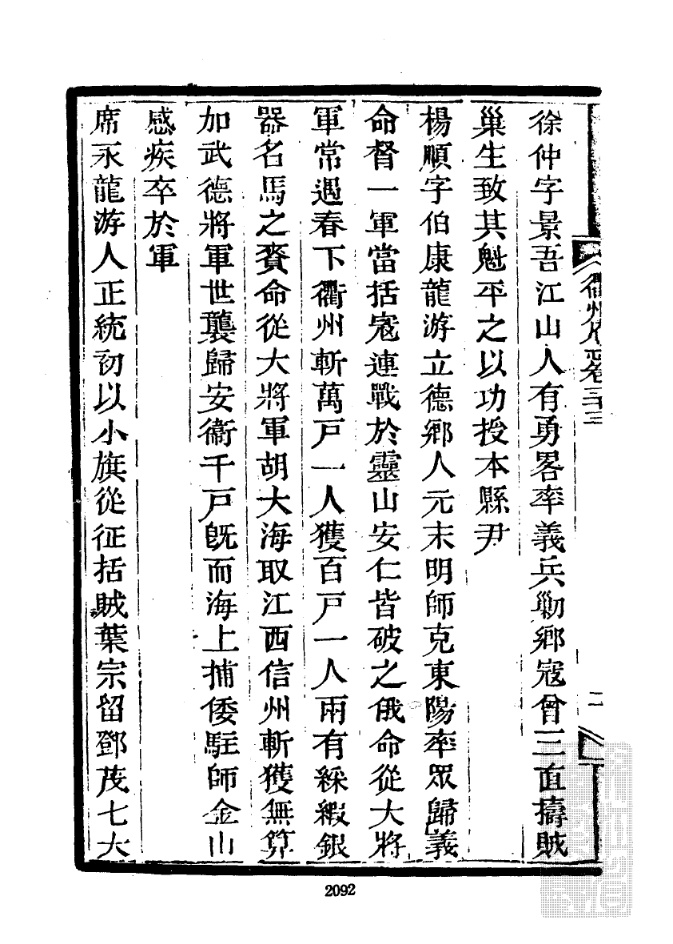 衢州府志卷三十三
二
徐仲字景吾江山人有勇畧率義兵勦鄉寇曾三直擣賊
巢生致其魁平之以功授本縣尹
楊順字伯康龍游立德鄉人元末明師克東陽率眾歸義
命督一軍當括寇連戰於靈山安仁皆破之俄命從大將
軍常遇春下衢州斬萬戶一人獲百戶一人兩有綵緞銀
器名馬之賚命從大將軍胡大海取江西信州斬獲無算
加武德將軍世襲歸安衞千戶旣而海上捕倭駐師金山
感疾卒於軍
席永龍游人正統初以小旗從征括賊葉宗留鄧茂七大
2092